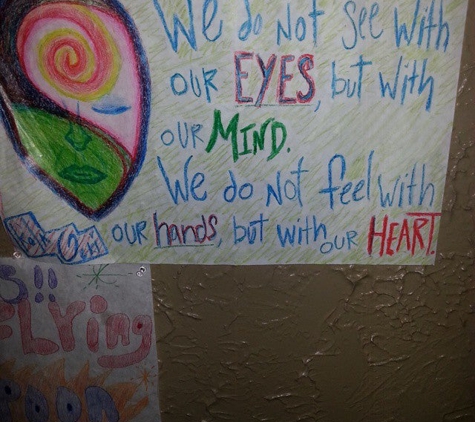 We do not see with
our EYES, but with
our MIND.
We do not feel with
our hands, but with our HEART.
S!!
FLYing